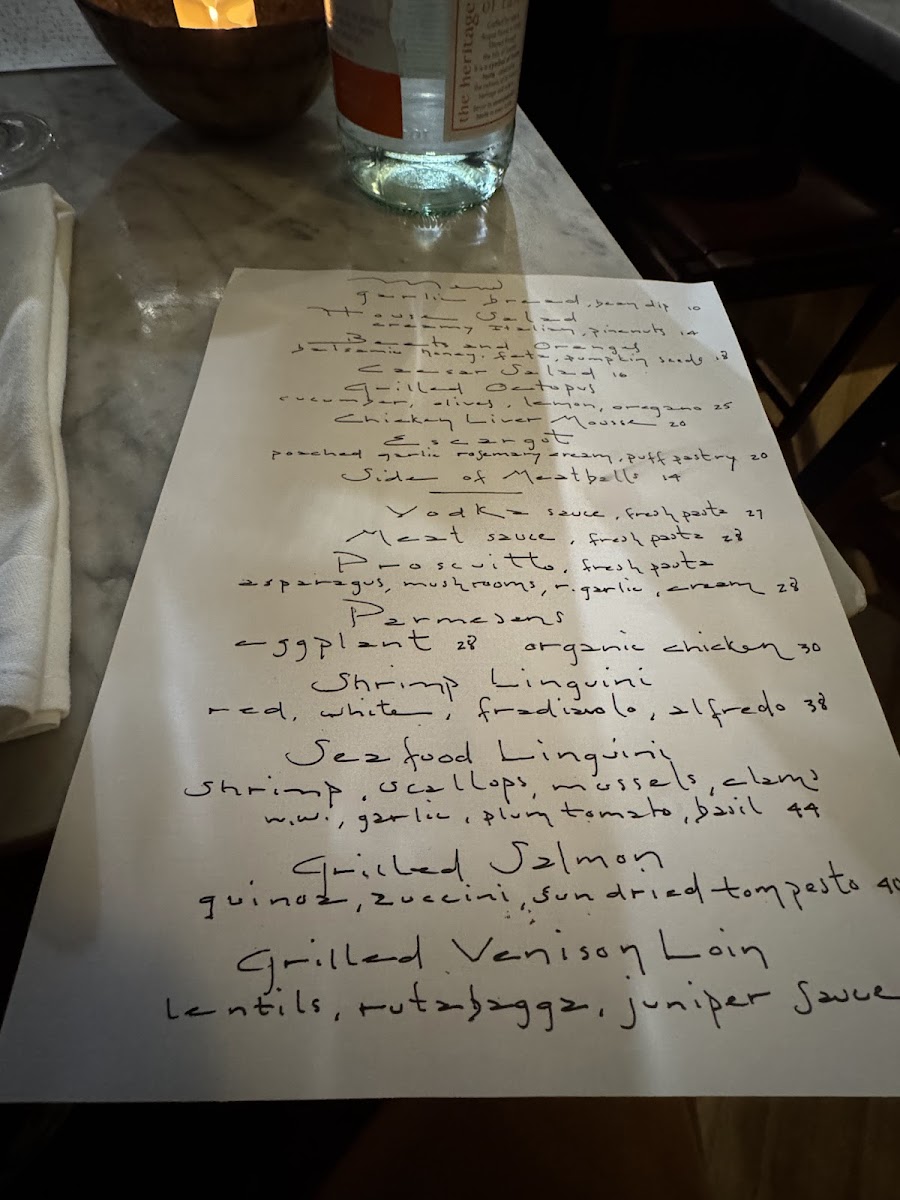 OF
the heritage
Menu
garlic bread, bean dip 10
House Salad
creamy Italian, pinenuts 14
Beets and Oranges
balsamic honey, feta, pumpkin seeds 18
Caesar Salad 16
Grilled Octopus
cucumber, olives, lemon, oregano 25
Chicken Liver Mousse 20
Escargot
poached garlic rosemary cream, puff pastry 20
Side of Meatballs 14
Vodka sauce, fresh pasta 27
Meat sauce, fresh pasta 28
Proscuitto, fresh pasta
asparagus, mushrooms, r. garlic, cream 28
Parmesans
eggplant 28 organic chicken 30
Shrimp Linguini
red, white, fradiavolo, alfredo 38
Seafood Linguini
shrimp, scallops, mussels, clams
w.w., garlic, plum tomato, basil 44
Grilled Salmon
quinoa, zuccini, sundried tom pesto 40
Grilled Venison Loin
lentils, rutabagga, juniper sauce